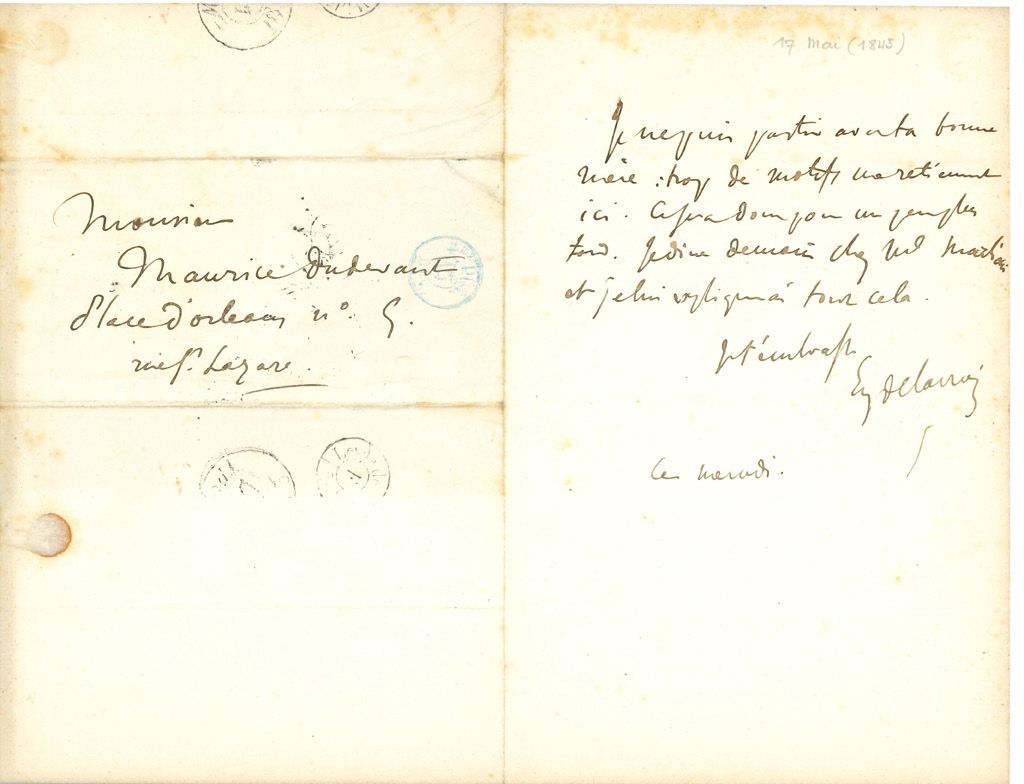 Monsieur
Maurice Dudevant
Place d'orleans n° 5.
rue St Lazare.
17 Mai (1845)
Je ne puis partir avec ta bonne
mère : trop de motifs me retiennent
ici. Ce sera donc pour un peu plus
tard. Je dine demain chez
et je lui expliquerai tout cela.
Je t'embrasse
Eug Delacroix
Ce mercredi.